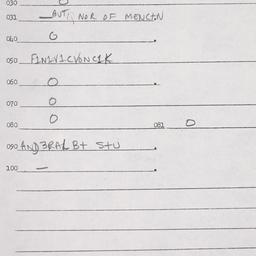 030 O
031 AUT NOR OF MENCHN
040 O
050 F1N1V1CV0NC1K
060 O
070 O
080 O 081 O
090 AND3RAL B+ S+U
100 —